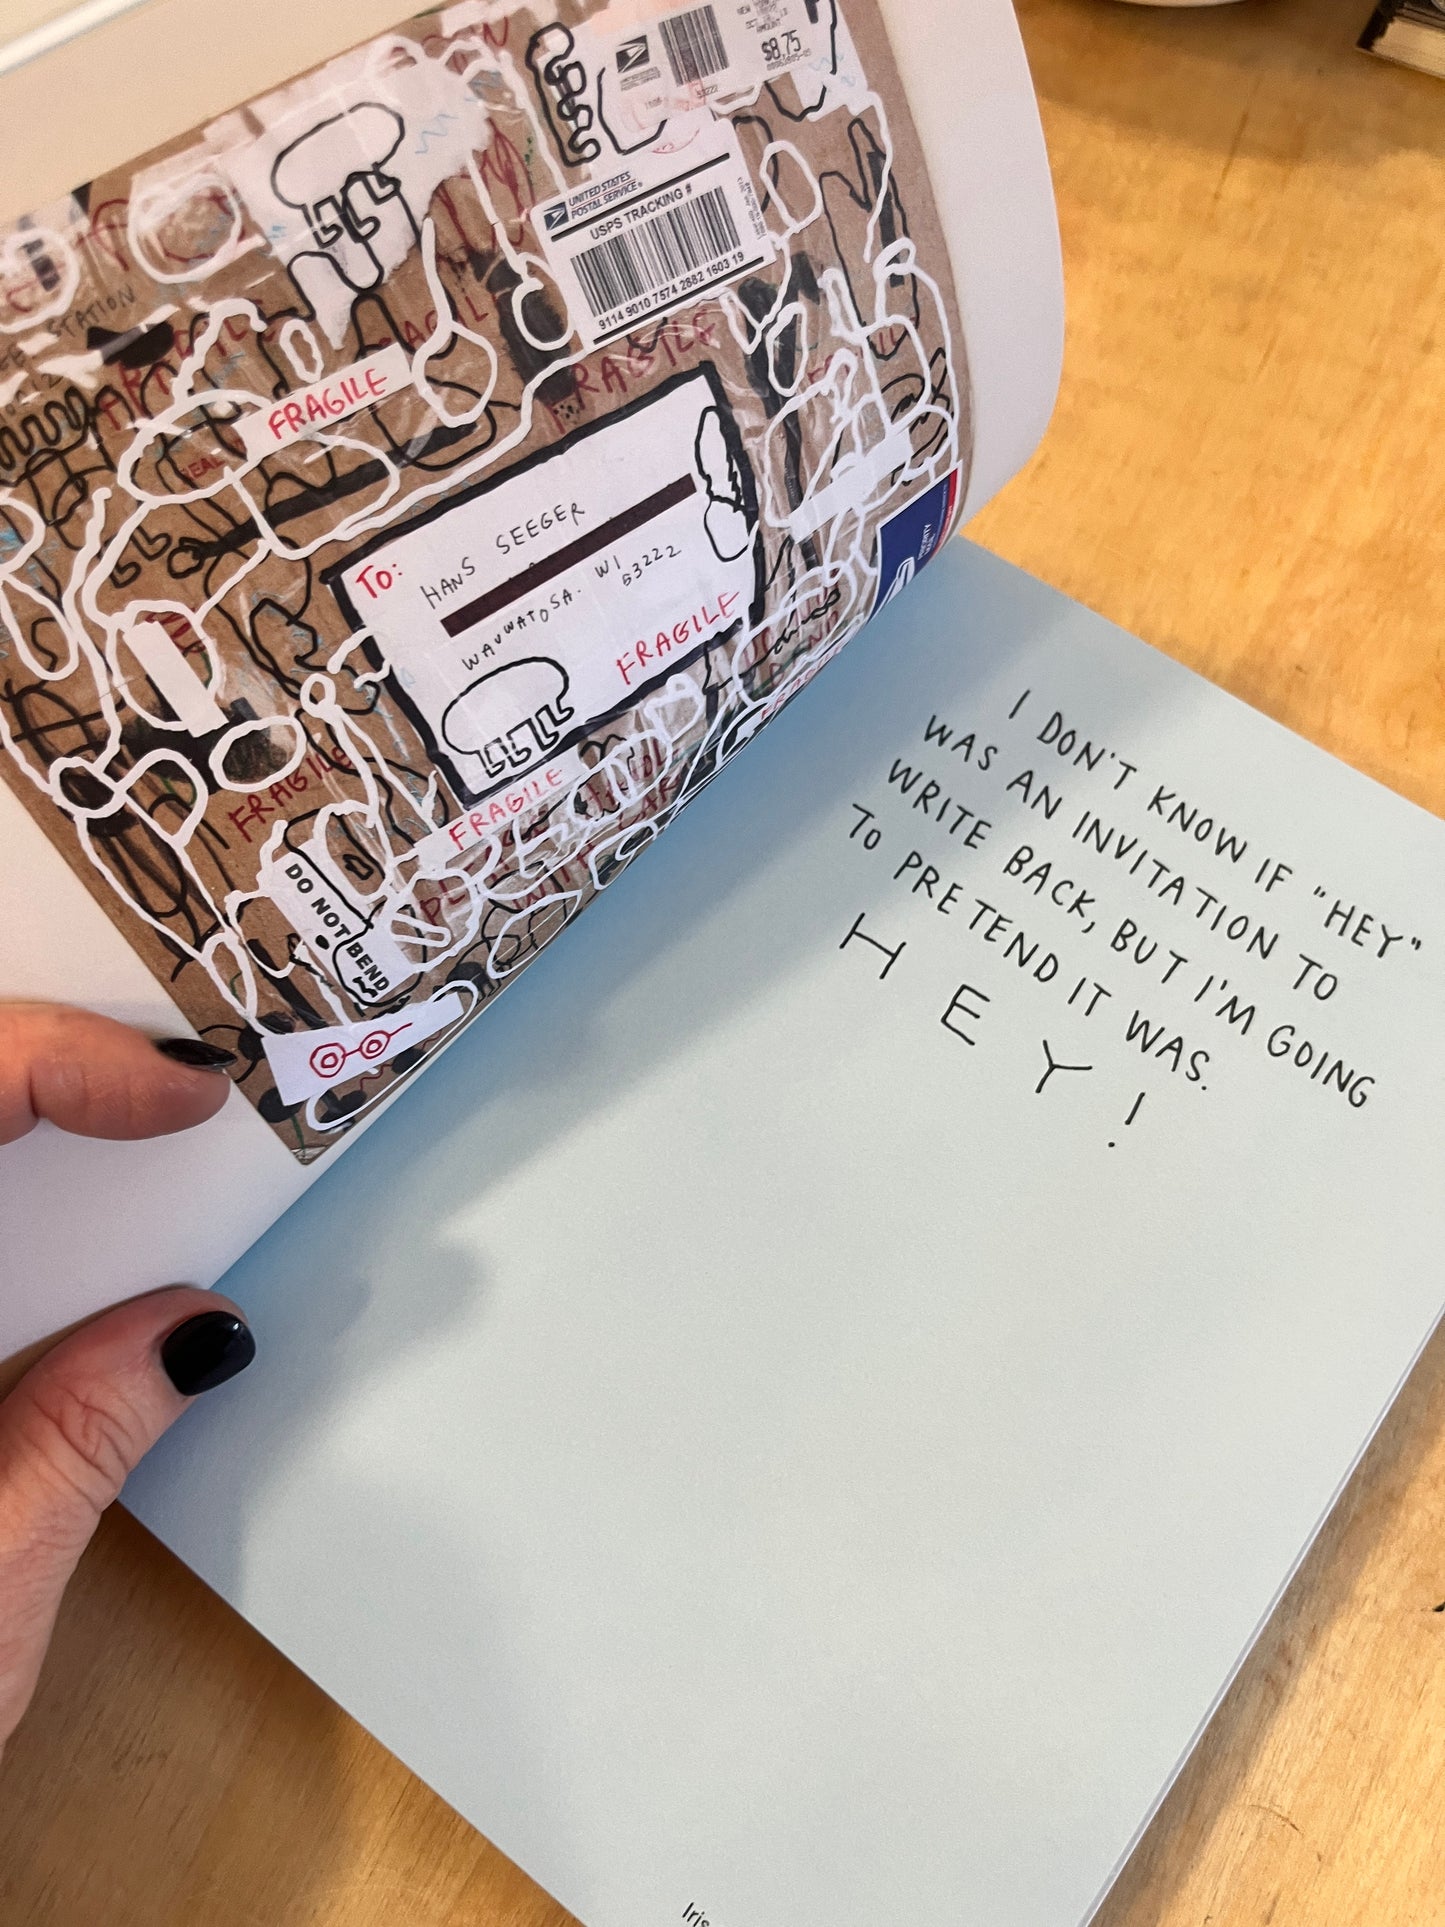 $8.75
UNITED STATES
POSTAL SERVICE®
USPS TRACKING #
9114 9010 7574 2882 1603 19
STATION
FRAGILE
FRAGILE
TO:
HANS SEEGER
WAUWATOSA. WI
53222
FRAGILE
FRAGILE
FRAGILE
DO NOT BEND
PRIORITY
MAIL
I DON'T KNOW IF "HEY"
WAS AN INVITATION TO
WRITE BACK, BUT I'M GOING
TO PRETEND IT WAS.
HEY!